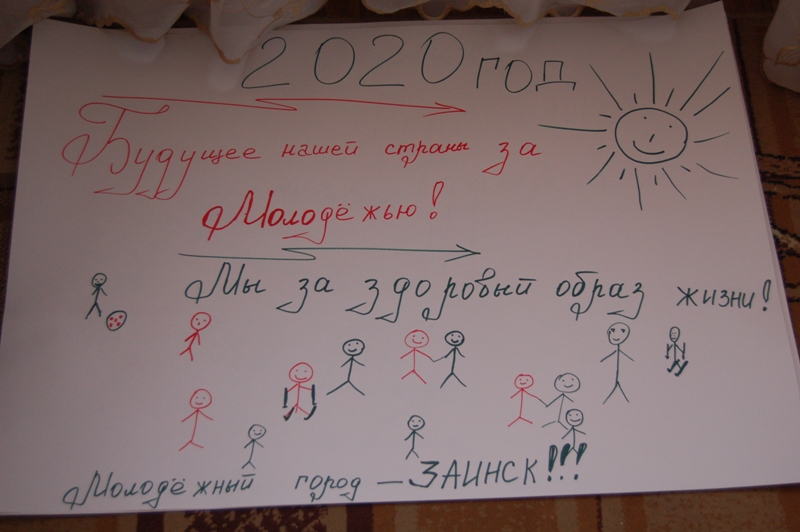 2020 год
Будущее нашей страны за
Молодёжью!
Мы за здоровый образ жизни!
Молодёжный город – ЗАИНСК!!!